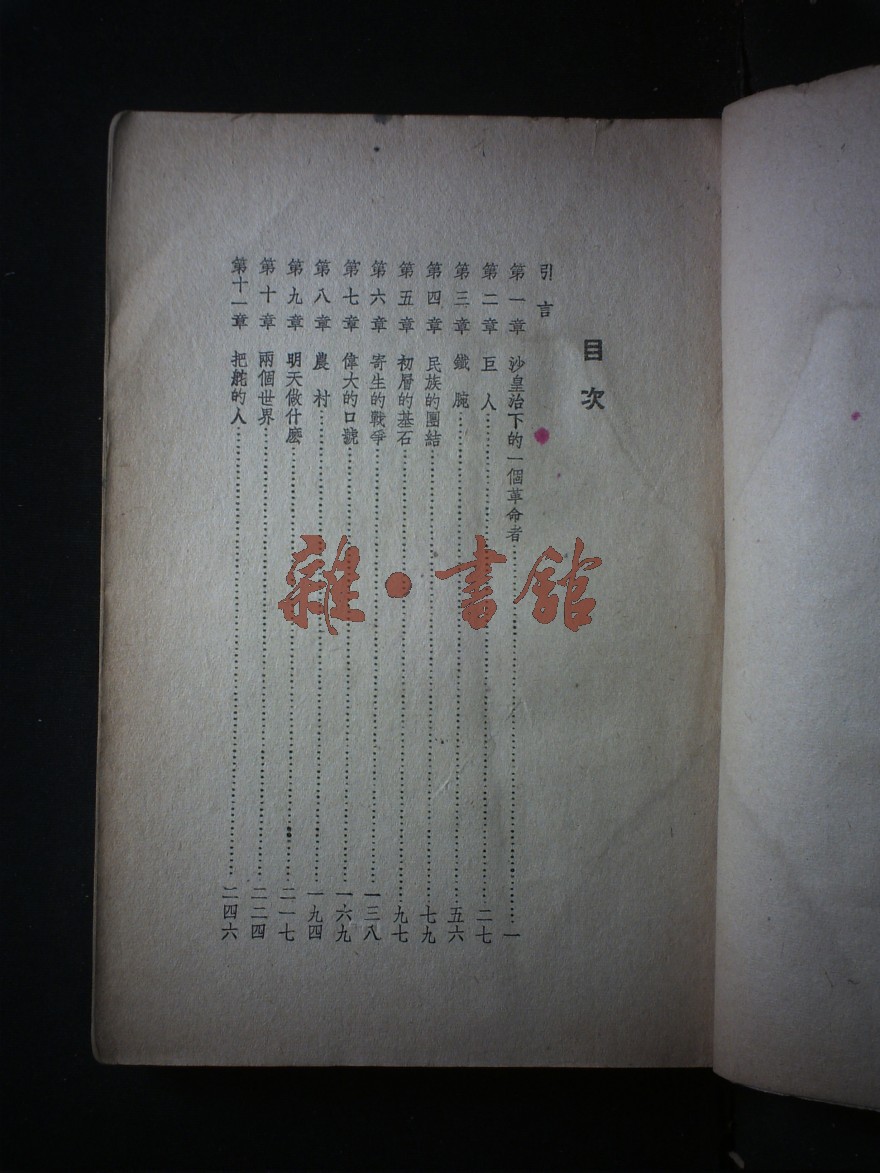 目次
引言
第一章 沙皇治下的一個革命者……一
第二章 巨人……二七
第三章 鐵腕……五六
第四章 民族的團結……七九
第五章 初層的基石……九七
第六章 寄生的戰爭……一三八
第七章 偉大的口號……一六九
第八章 農村……一九四
第九章 明天做什麽……二一七
第十章 兩個世界……二二四
第十一章 把舵的人……二四六
雜·書館